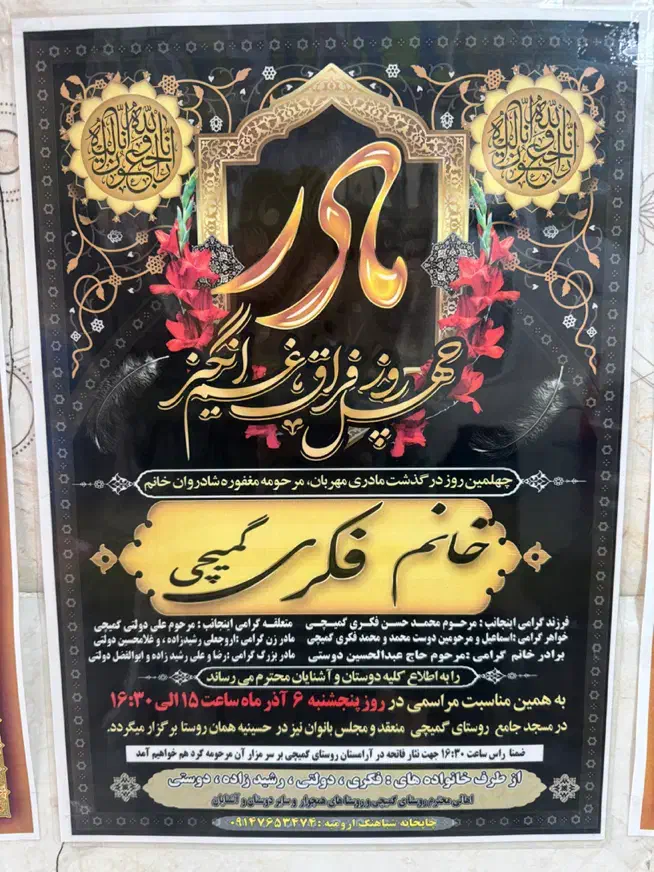 انا لله و انا الیه راجعون
انا لله و انا الیه راجعون
مادر
چهل روز فراق غم انگیز
چهلمین روز درگذشت مادری مهربان، مرحومه مغفوره شادروان خانم
خانم فکری گمیچی
فرزند گرامی اینجانب : مرحوم محمد حسن فکری گمیچـی متعلقه گرامی اینجانب : مرحوم علی دولتی گمیچی
خواهر گرامی :اسماعیل و مرحومین دوست محمد و محمد فکری گمیچی مادر زن گرامی :اروجعلی رشیدزاده ، و غلامحسین دولتی
برادر خانم گرامی :مرحوم حاج عبدالحسین دوستی مادر بزرگ گرامی :رضا و علی رشید زاده و ابوالفضل دولتی
را به اطلاع کلیه دوستان و آشنایان محترم می رساند
به همین مناسبت مراسمی در روز پنجشنبه ۶ آذر ماه ساعت ۱۵ الی ۱۶:۳۰
در مسجد جامع روستای گمیچی منعقد و مجلس بانوان نیز در حسینیه همان روستا برگزار میگردد.
ضمنا راس ساعت ۱۶:۳۰ جهت نثار فاتحه در آرامستان روستای گمیچی بر سر مزار آن مرحومه گرد هم خواهیم آمد
از طرف خانواده های : فکری ، دولتی ، رشید زاده ، دوستی
اهالی محترم روستای گمیچی و روستا های همجوار و سایر دوستان و آشنایان
چاپخانه شباهنگ ارومیه : ۰۹۱۴۷۶۵۳۴۷۴